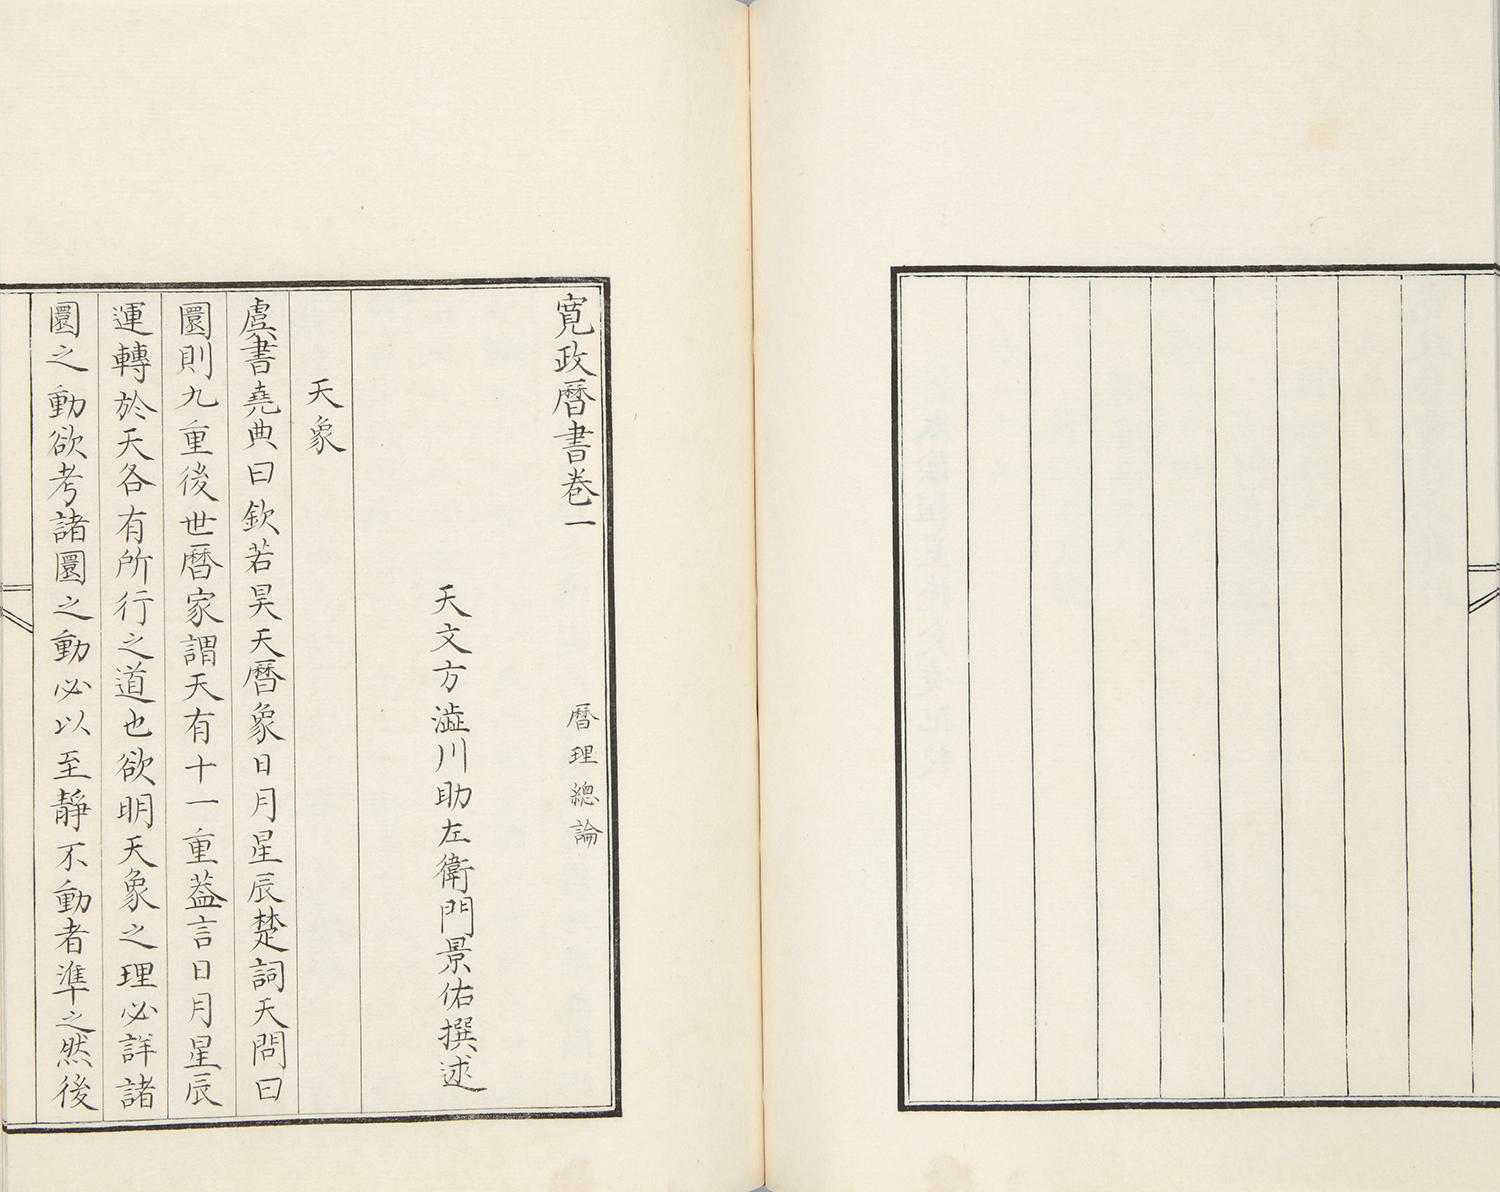 寛政暦書巻一　暦理總論
天文方澁川助左衛門景佑撰述
天象
虞書堯典曰欽若昊天暦象日月星辰楚詞天問曰
圜則九重後世暦家謂天有十一重葢言日月星辰
運轉於天各有所行之道也欲明天象之理必詳諸
圜之動欲考諸圜之動必以至靜不動者準之然後